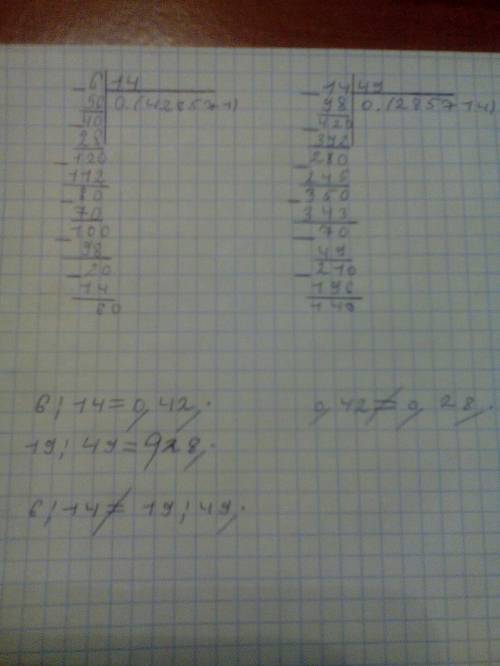 6 14
56 0.(428571)
40
28
120
112
80
70
100
98
20
14
60
14 49
98 0.(285714)
420
392
280
245
350
343
70
49
210
196
140
6 : 14 = 0,42,. 0,42 ≠ 0,28,.
19 : 49 = 0,28,.
6 : 14 ≠ 19 : 49,.